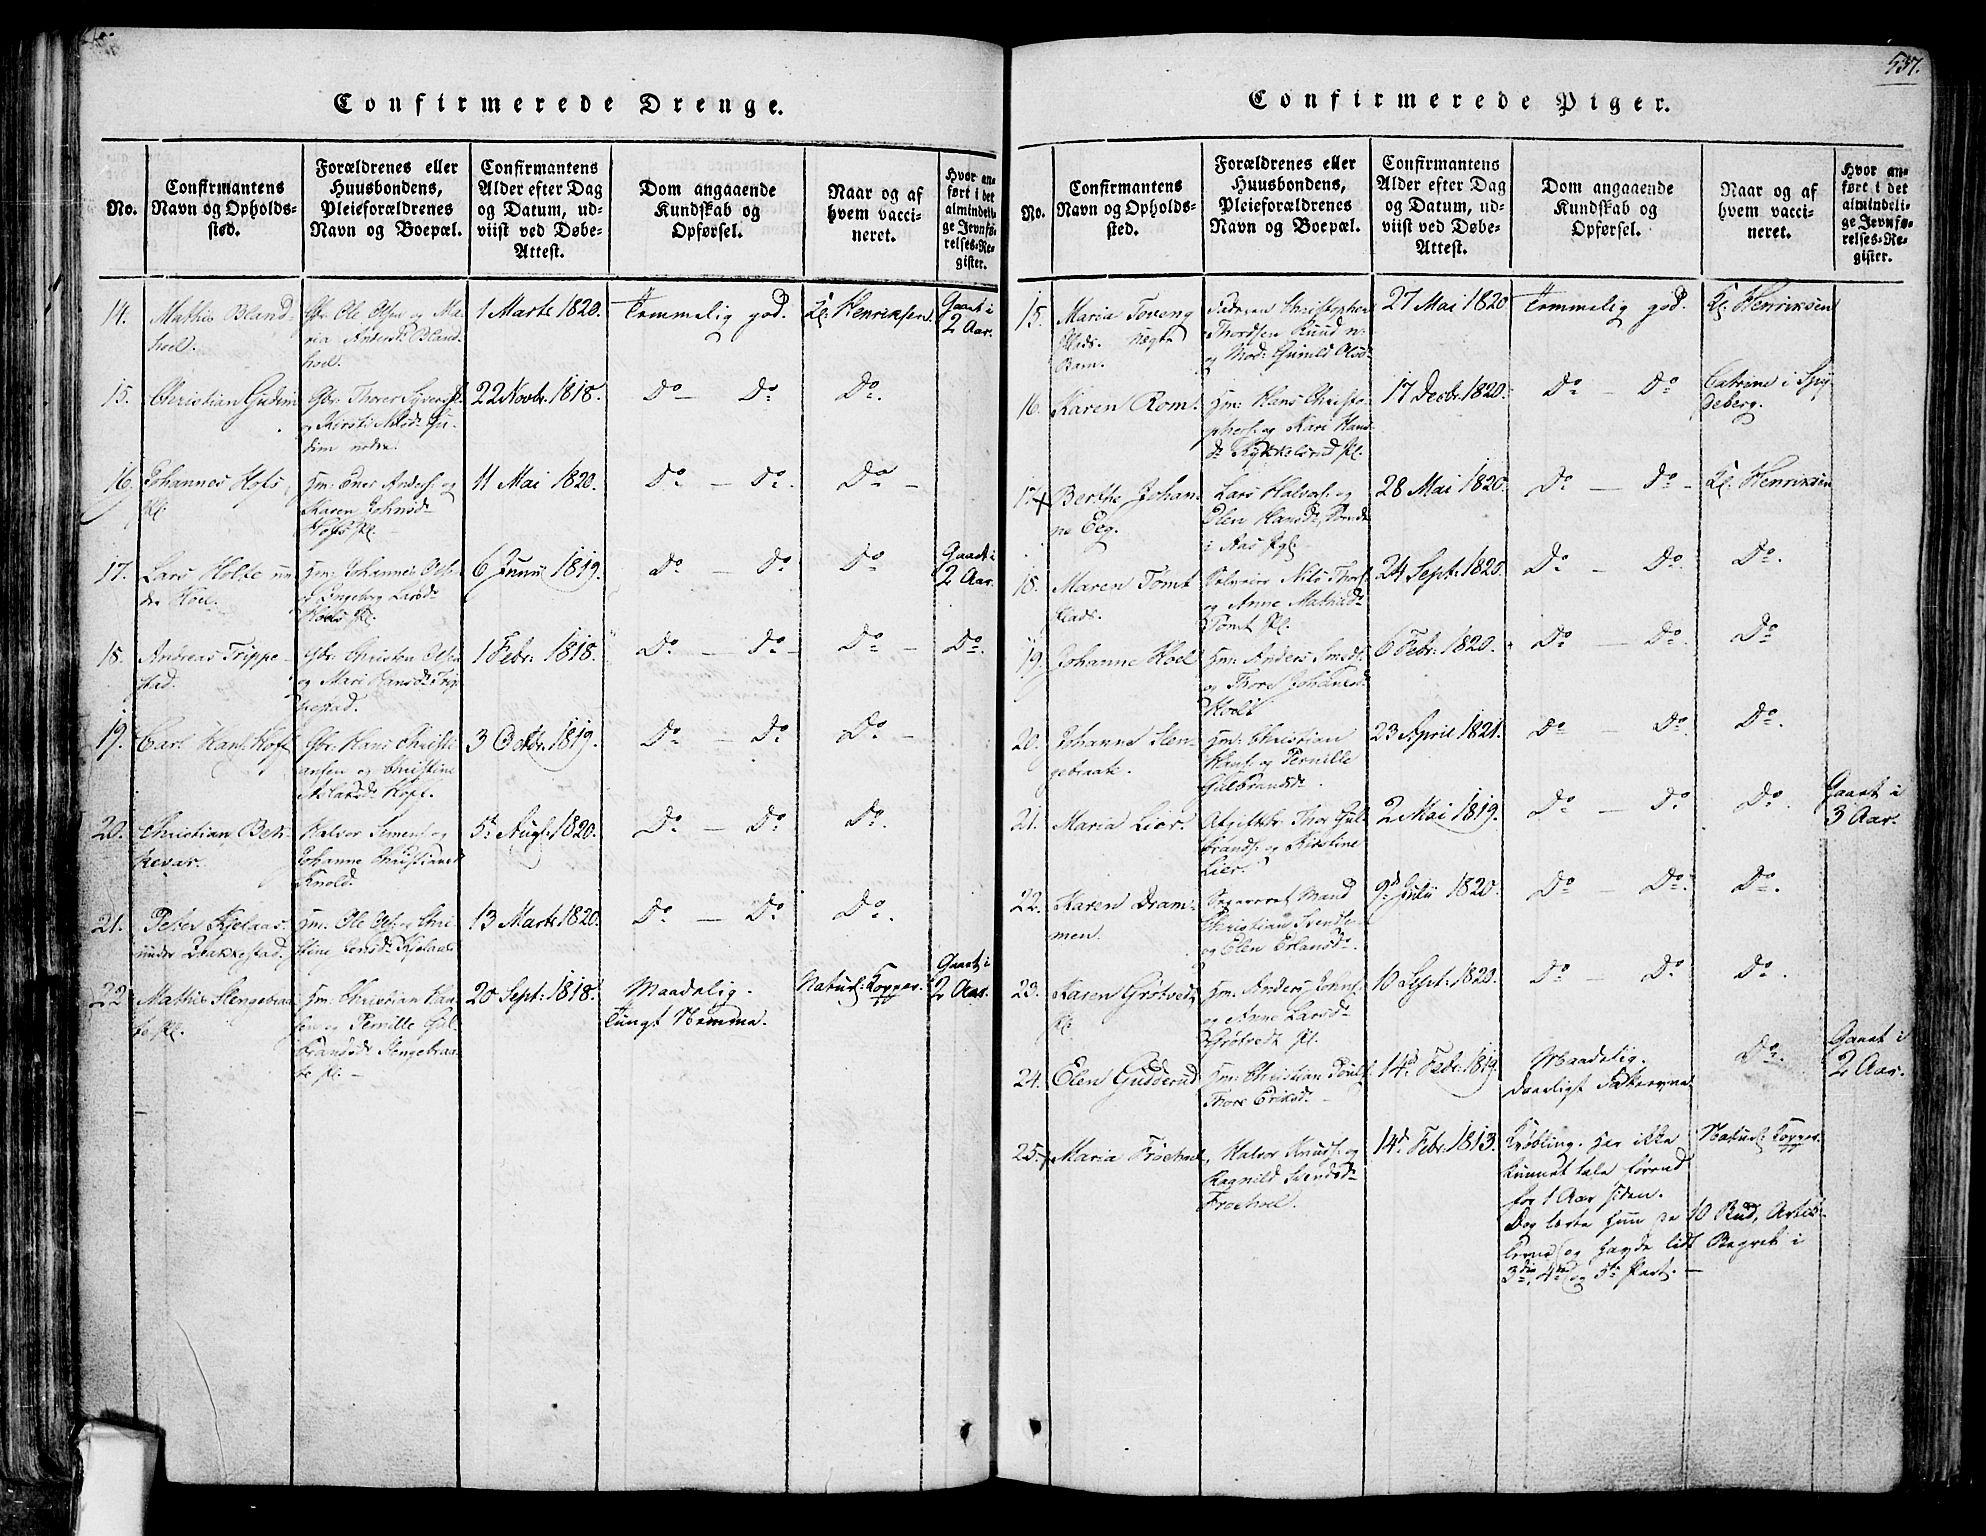 537.
Confirmerede Drenge.
No.
Confirmantens
Navn og Opholds-
sted.
Forældrenes eller
Huusbondens,
Pleieforældrenes
Navn og Boepæl.
Confirmantens
Alder efter Dag
og Datum, ud-
viist ved Døbe-
Attest.
Dom angaaende
Kundskab og
Opførsel.
Naar og af
hvem vacci-
neret.
Hvor an-
ført i det
almindeli-
ge Jevnfø-
relses-Re-
gister.
14.
Mathis Bland-
hoel.
Gbr. Ole Olsen og Ma-
ria Andersd. Bland-
hoel.
1 Marts 1820.
Temmelig god.
Kl. Henriksen.
Gaaet i
2 Aar.
15.
Christian Gudim
Gbr. Thorer Syvers.
og Kirsti Gu-
dim
22 Novbr. 1818.
Do — Do
Do.
16.
Johannes Hofs
Pl.
Hm. Ener Anders. og
Karen Johnsd.
Hofs Pl.
11 Mai 1820.
Do — Do.
Do —
17.
Lars Holte un-
der Hoel.
Hm. Johannes Ols.
og Ingeborg Larsd.
Hoels Pl.
6 Junii 1819.
Do — Do
Do
Gaaet i
2 Aar.
18.
Andreas Trippe-
stad.
Gbr. Christen Olsen
og Mari Hansd. Trip-
pestad.
1 Febr. 1818.
Do — Do —
Do —
Do.
19.
Carl Hans. Hoff
Gbr. Hans Christi-
ansen og Christine
Hoff.
3 Octbr. 1819.
Do — Do
Do —
20.
Christian Bek-
kevar.
Halvor Simens. og
Johanne Christians
Knold.
5 Aug. 1820.
Do — Do
Do.
21.
Peter Kjelaas
under Brakkestad.
Hm. Ole Ols. og Chri-
stine Jensd. Kjelaas
13 Marts 1820.
Do — Do
Do.
22
Mathis Slengebraa-
te Pl.
Hm. Christian Han-
sen og Pernille Gul-
brandsd. Slengebraa-
te Pl. —
20 Sept. 1818.
Maadelig.
Tungt Nemme.
Naturl. Kopper.
Gaaet i
2 Aar.
Confirmerede Piger.
No.
Confirmantens
Navn og Opholds-
sted.
Forældrenes eller
Huusbondens,
Pleieforældrenes
Navn og Boepæl.
Confirmantens
Alder efter Dag
og Datum, ud-
viist ved Døbe-
Attest.
Dom angaaende
Kundskab og
Opførsel.
Naar og af
hvem vacci-
neret.
Hvor an-
ført i det
almindeli-
ge Jevnfø-
relses-Re-
gister.
15.
Maria Toveng
Eids. Uægte
Barn.
Faderen Christopher
Thordsen Ruud
og Mod. Gunild Olsd.
27 Mai 1820
Temmelig god.
Kl. Henriksen
16.
Karen Rom.
Hm. Hans Christo-
phers. og Kari Hans-
d. Kykkelsrud Pl.
17 Decbr. 1820.
Do — Do
Catrine i Spy-
deberg.
17. +
Berthe Johan-
ne Eeg.
Lars Halvors. og
Elen Hansd.
i Aas Pgl.
28 Mai 1820.
Do — Do —
Kl. Henriksen
18.
Maren Tomt
Eids.
Selveier Nils Thors.
og Anne Mathisd.
Tomt Pl.
24 Sept. 1820.
Do — Do.
Do.
19.
Johanne Hoel
Hm. Anders
og Thore Johannsd.
Hoels
6 Febr. 1820.
Do — Do.
Do
20.
Johanne Slen-
gebraate.
Hm. Christian
Hans. og Pernille
Gulbrandsd.
23 April 1821.
Do — Do.
Do.
21.
Maria Lier.
Thor Gul-
brands. og Kirstine
Lier.
2 Mai 1819.
Do — Do.
Do.
Gaaet i
3 Aar.
22.
Karen Dram-
men.
Mand
Christian Svends.
og Elen Erlandsd.
9 Julii 1820.
Do — Do.
Do.
23.
Karen Grøtvedt
Pl.
Hm. Anders Johns.
og Anne Larsd.
Grøtvedt Pl.
10 Sept. 1820.
Do — Do
Do.
24.
Elen Gudderud
Hm. Christian Pouls.
Thore Eriksd. —
14 Febr. 1819
Maadelig.
Daarligt
Do.
Gaaet i
2 Aar.
25. +
Maria Froehoel
Halvor Knuds. og
Ragnild Svendsd.
Froehoel.
14 Febr. 1813.
Krøbling. Har ikke
kunnet tale førend
for 1 Aar siden.
Dog lærte hun de 10 Bud, Artik-
lerne og havde lidt Begreb i
3die, 4de og 5te Part. —
Naturl. Kopper.